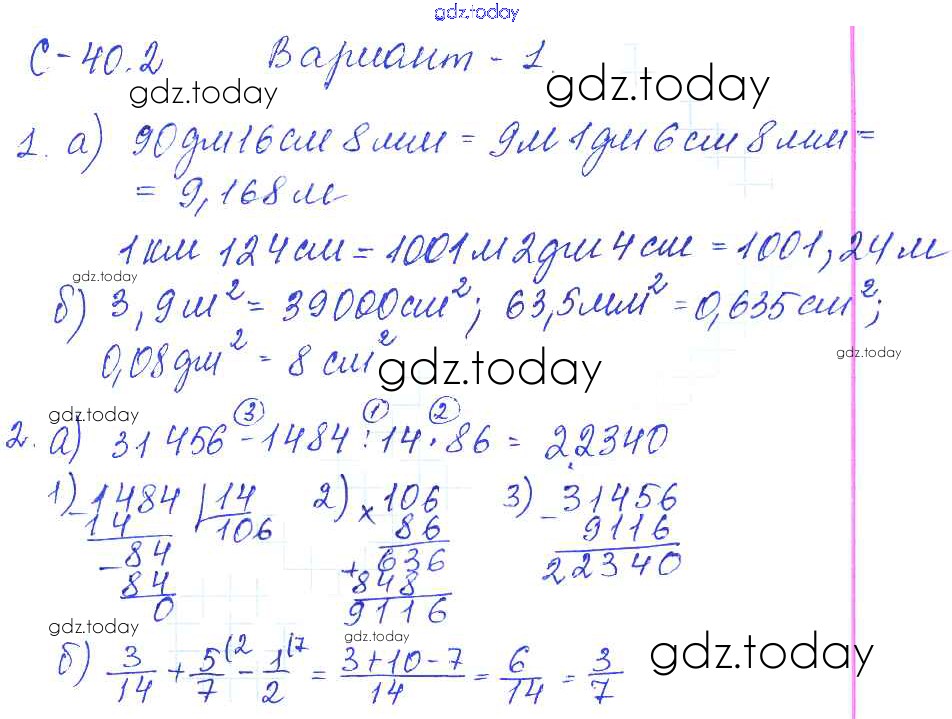 gdz.today
С-40.2 Вариант - 1.
gdz.today gdz.today
1. а) 90дм16см 8мм = 9м 1дм 6см 8мм =
= 9,168м
1км 124см = 1001м 2дм 4см = 1001,24м
gdz.today
б) 3,9м² = 39000см²; 63,5мм² = 0,635см²;
0,08дм² = 8 см²
gdz.today gdz.today
gdz.today
③ ① ②
2. а) 31456 - 1484 : 14 · 86 = 22340
1) 1484 | 14 2) 106 3) 31456
14 106 × 86 - 9116
- 84 + 636 22340
84 848
0 9116
gdz.today gdz.today gdz.today
б) 3/14 + 5/7 (2 - 1/2 (7 = 3+10-7/14 = 6/14 = 3/7